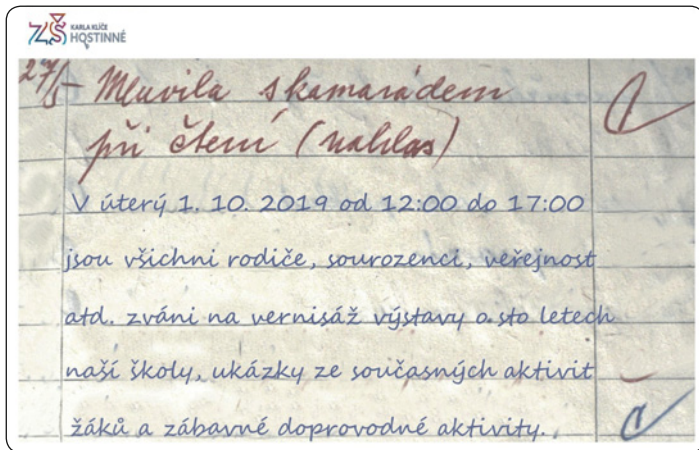 ZŠ KARLA KLÍČE
HOSTINNÉ
27/5 Mluvila s kamarádem
při čtení (nahlas)
V úterý 1. 10. 2019 od 12:00 do 17:00
jsou všichni rodiče, sourozenci, veřejnost
atd. zváni na vernisáž výstavy o sto letech
naší školy, ukázky ze současných aktivit
žáků a zábavné doprovodné aktivity.